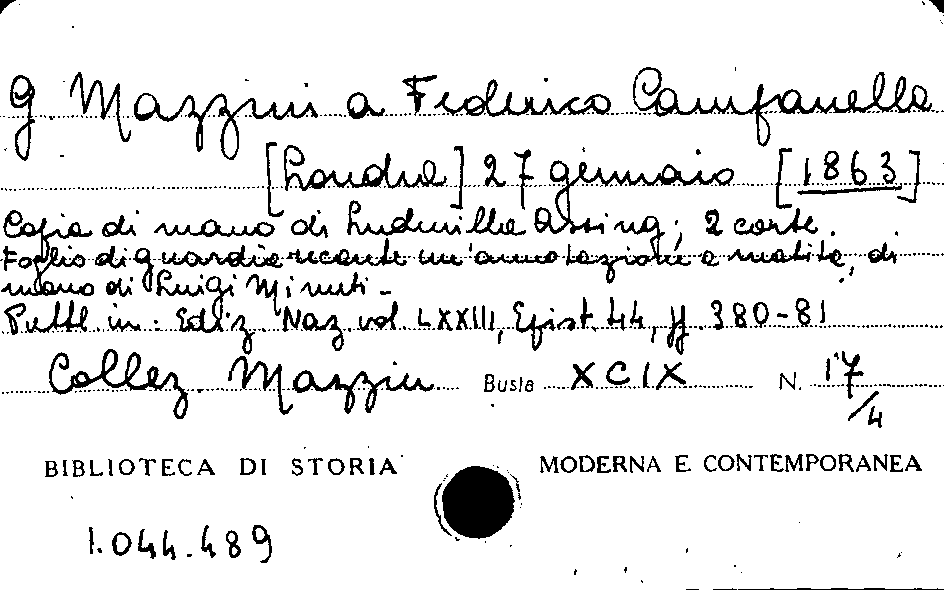 G. Mazzini a Federico Campanella
[Londra] 27 gennaio [1863]
Copia di mano di Ludmilla Assing; 2 carte.
Foglio di guardia recante un'annotazione a matita, di
mano di Luigi Minuti -
Pubbl. in: Ediz. Naz. vol. LXXIII, Epist. 44, pp. 380-81
Collez. Mazzini Busta XCIX N. 17/4
BIBLIOTECA DI STORIA MODERNA E CONTEMPORANEA
1.044.489